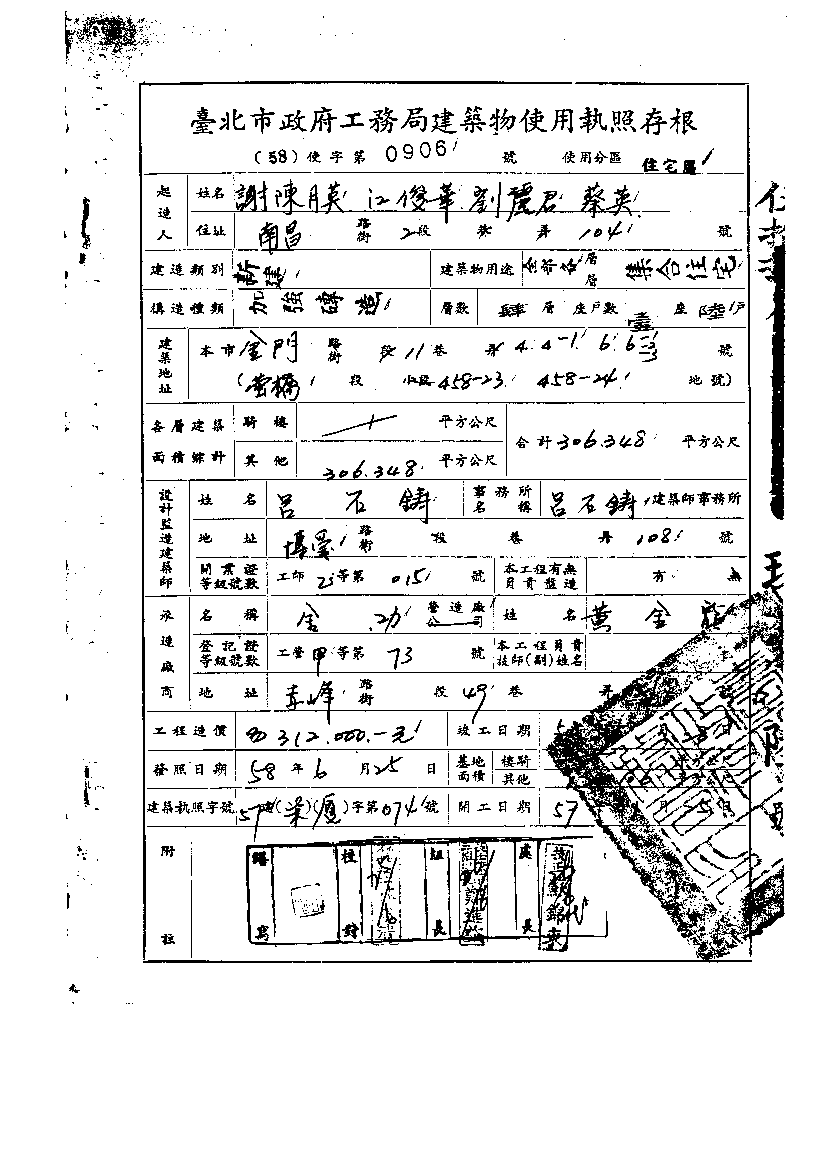 臺北市政府工務局建築物使用執照存根
(58)使字第0906號 使用分區 住宅區
起造人 姓名 謝陳月英 江俊華 劉麗君 蔡英
住址 南昌 路街 2段 巷 弄 104 號
建造類別 新建 建築物用途 全部各層層 集合住宅
構造種類 加強磚造 層數 肆層 座戶數 壹座 陸戶
建築地址 本市金門 路街 段11巷 弄4.4-1.6.6-1 號
(螢橋 段 小段458-23. 458-24 地號)
各層建築面積綜計 騎樓 平方公尺 合計306.348 平方公尺
其他 306.348 平方公尺
設計監造建築師 姓名 呂石鑄 事務所名稱 呂石鑄 建築師事務所
地址 博愛 路街 段 巷 弄 108 號
開業證等級號數 工師 乙等第 015 號 本工程有無負責監造 有 無
承造廠商 名稱 金功 營造廠公司 姓名 黃金
登記證等級號數 工營甲等第 73 號 本工程負責技師(副)姓名
地址 赤峰 路街 段49巷 弄
工程造價 312.000.-元 竣工日期
發照日期 58年6月25日 基地面積 樓騎 其他 平方公尺
建築執照字號 57建( )( )字第074號 開工日期 57
附註 繕寫 校對 組長 處長